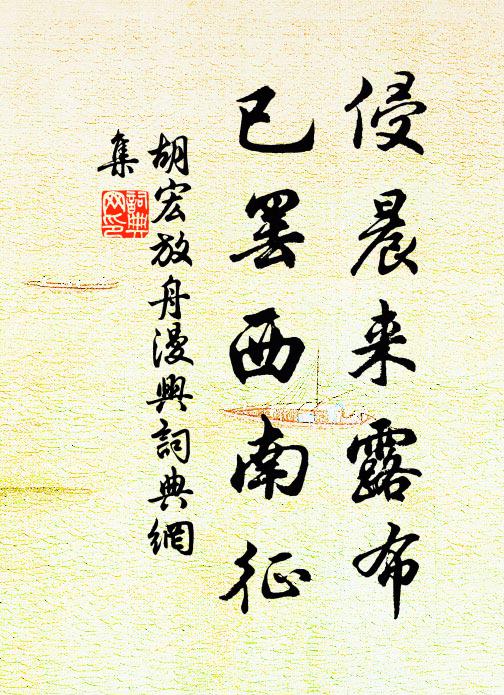 侵晨来露布
已罢西南征
胡宏放舟漫興詞典網
集
詞典
网印